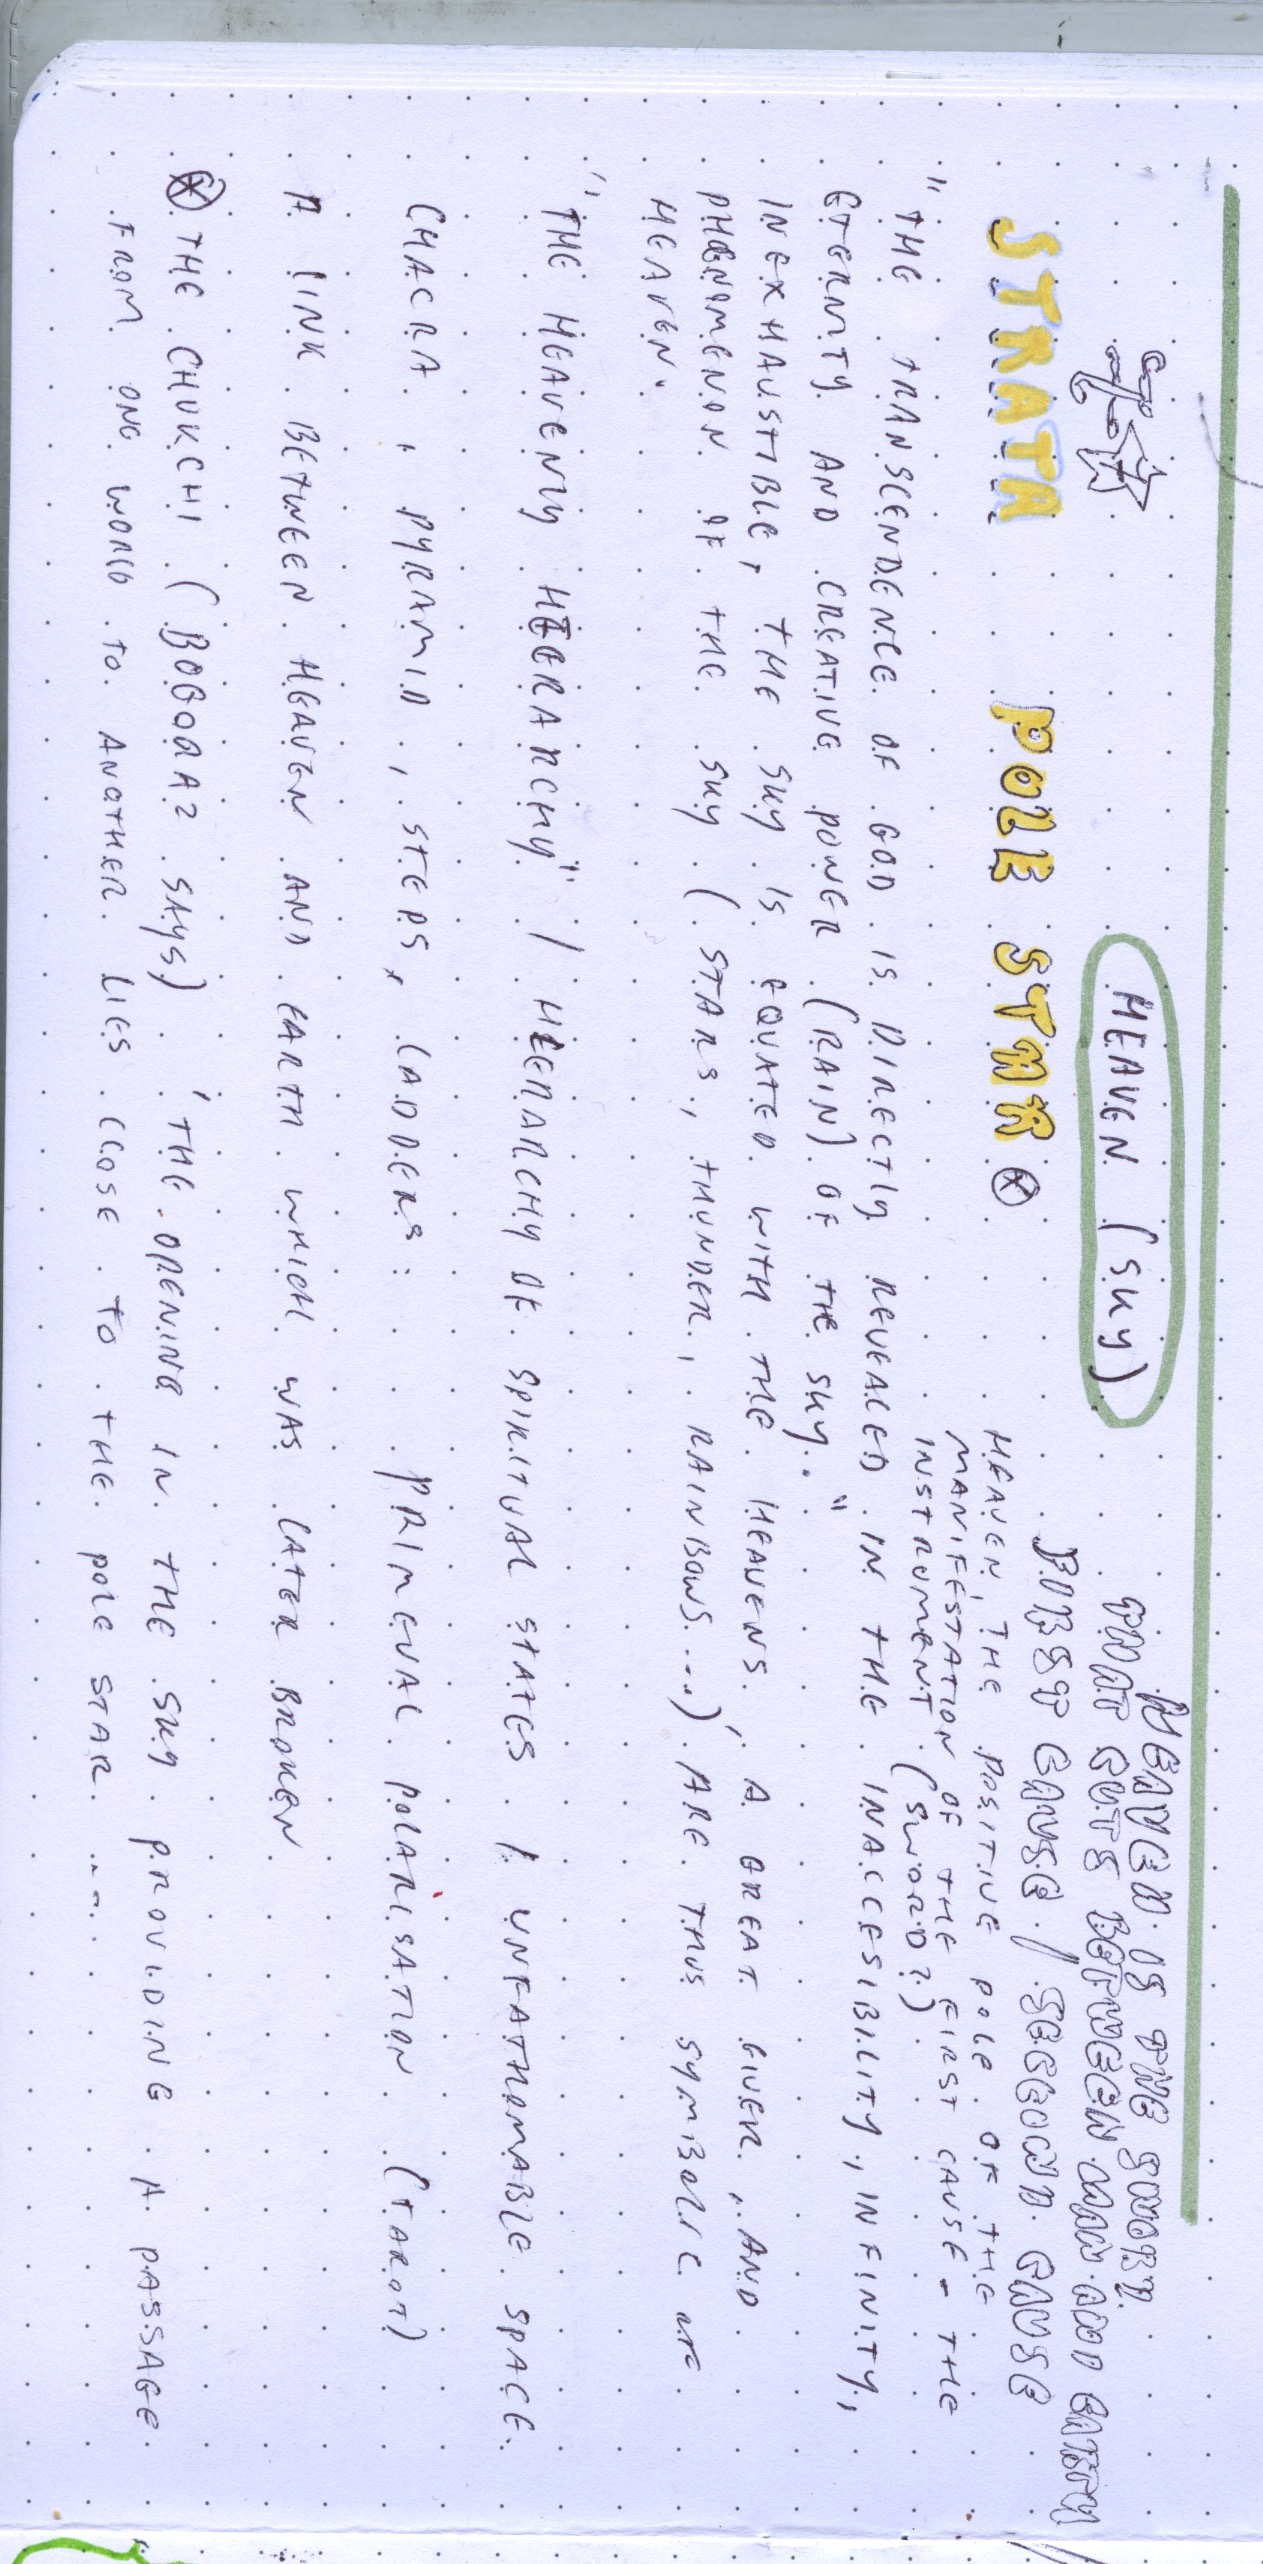 HEAVEN (SKY)
HEAVEN IS THE SWORD
THAT CUTS BETWEEN MAN AND EARTH
FIRST CAUSE / SECOND CAUSE
STRATA POLE STAR ⊗
HEAVEN, THE POSITIVE POLE OF THE
MANIFESTATION OF THE FIRST CAUSE - THE
INSTRUMENT (SWORD?)
"THE TRANSCENDENCE OF GOD IS DIRECTLY REVEALED IN THE INACCESIBILITY, INFINITY,
ETERNITY AND CREATIVE POWER (RAIN) OF THE SKY."
INEXHAUSTIBLE, THE SKY IS EQUATED WITH THE HEAVENS. 'A GREAT GIVER, AND
PHENOMENON OF THE SKY (STARS, THUNDER, RAINBOWS...)' ARE THUS SYMBOLIC
HEAVEN.
"THE HEAVENLY HIERARCHY" / HIERARCHY OF SPIRITUAL STATES / UNFATHOMABLE SPACE.
CHACRA, PYRAMID, STEPS, LADDERS: PRIMEVAL POLARISATION (TAROT)
A LINK BETWEEN HEAVEN AND EARTH WHICH WAS LATER BROKEN
⊗ THE CHUKCHI (BOGORAZ SAYS) 'THE OPENING IN THE SKY PROVIDING A PASSAGE
FROM ONE WORLD TO ANOTHER LIES CLOSE TO THE POLE STAR ...